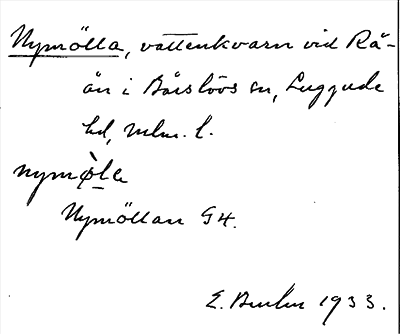 Nymölla, vattenkvarn vid Rå-
ån i Bårslövs sn, Luggude
hd, mlm. l.
nymø̀la
Nymöllan G4.
E. 1933.